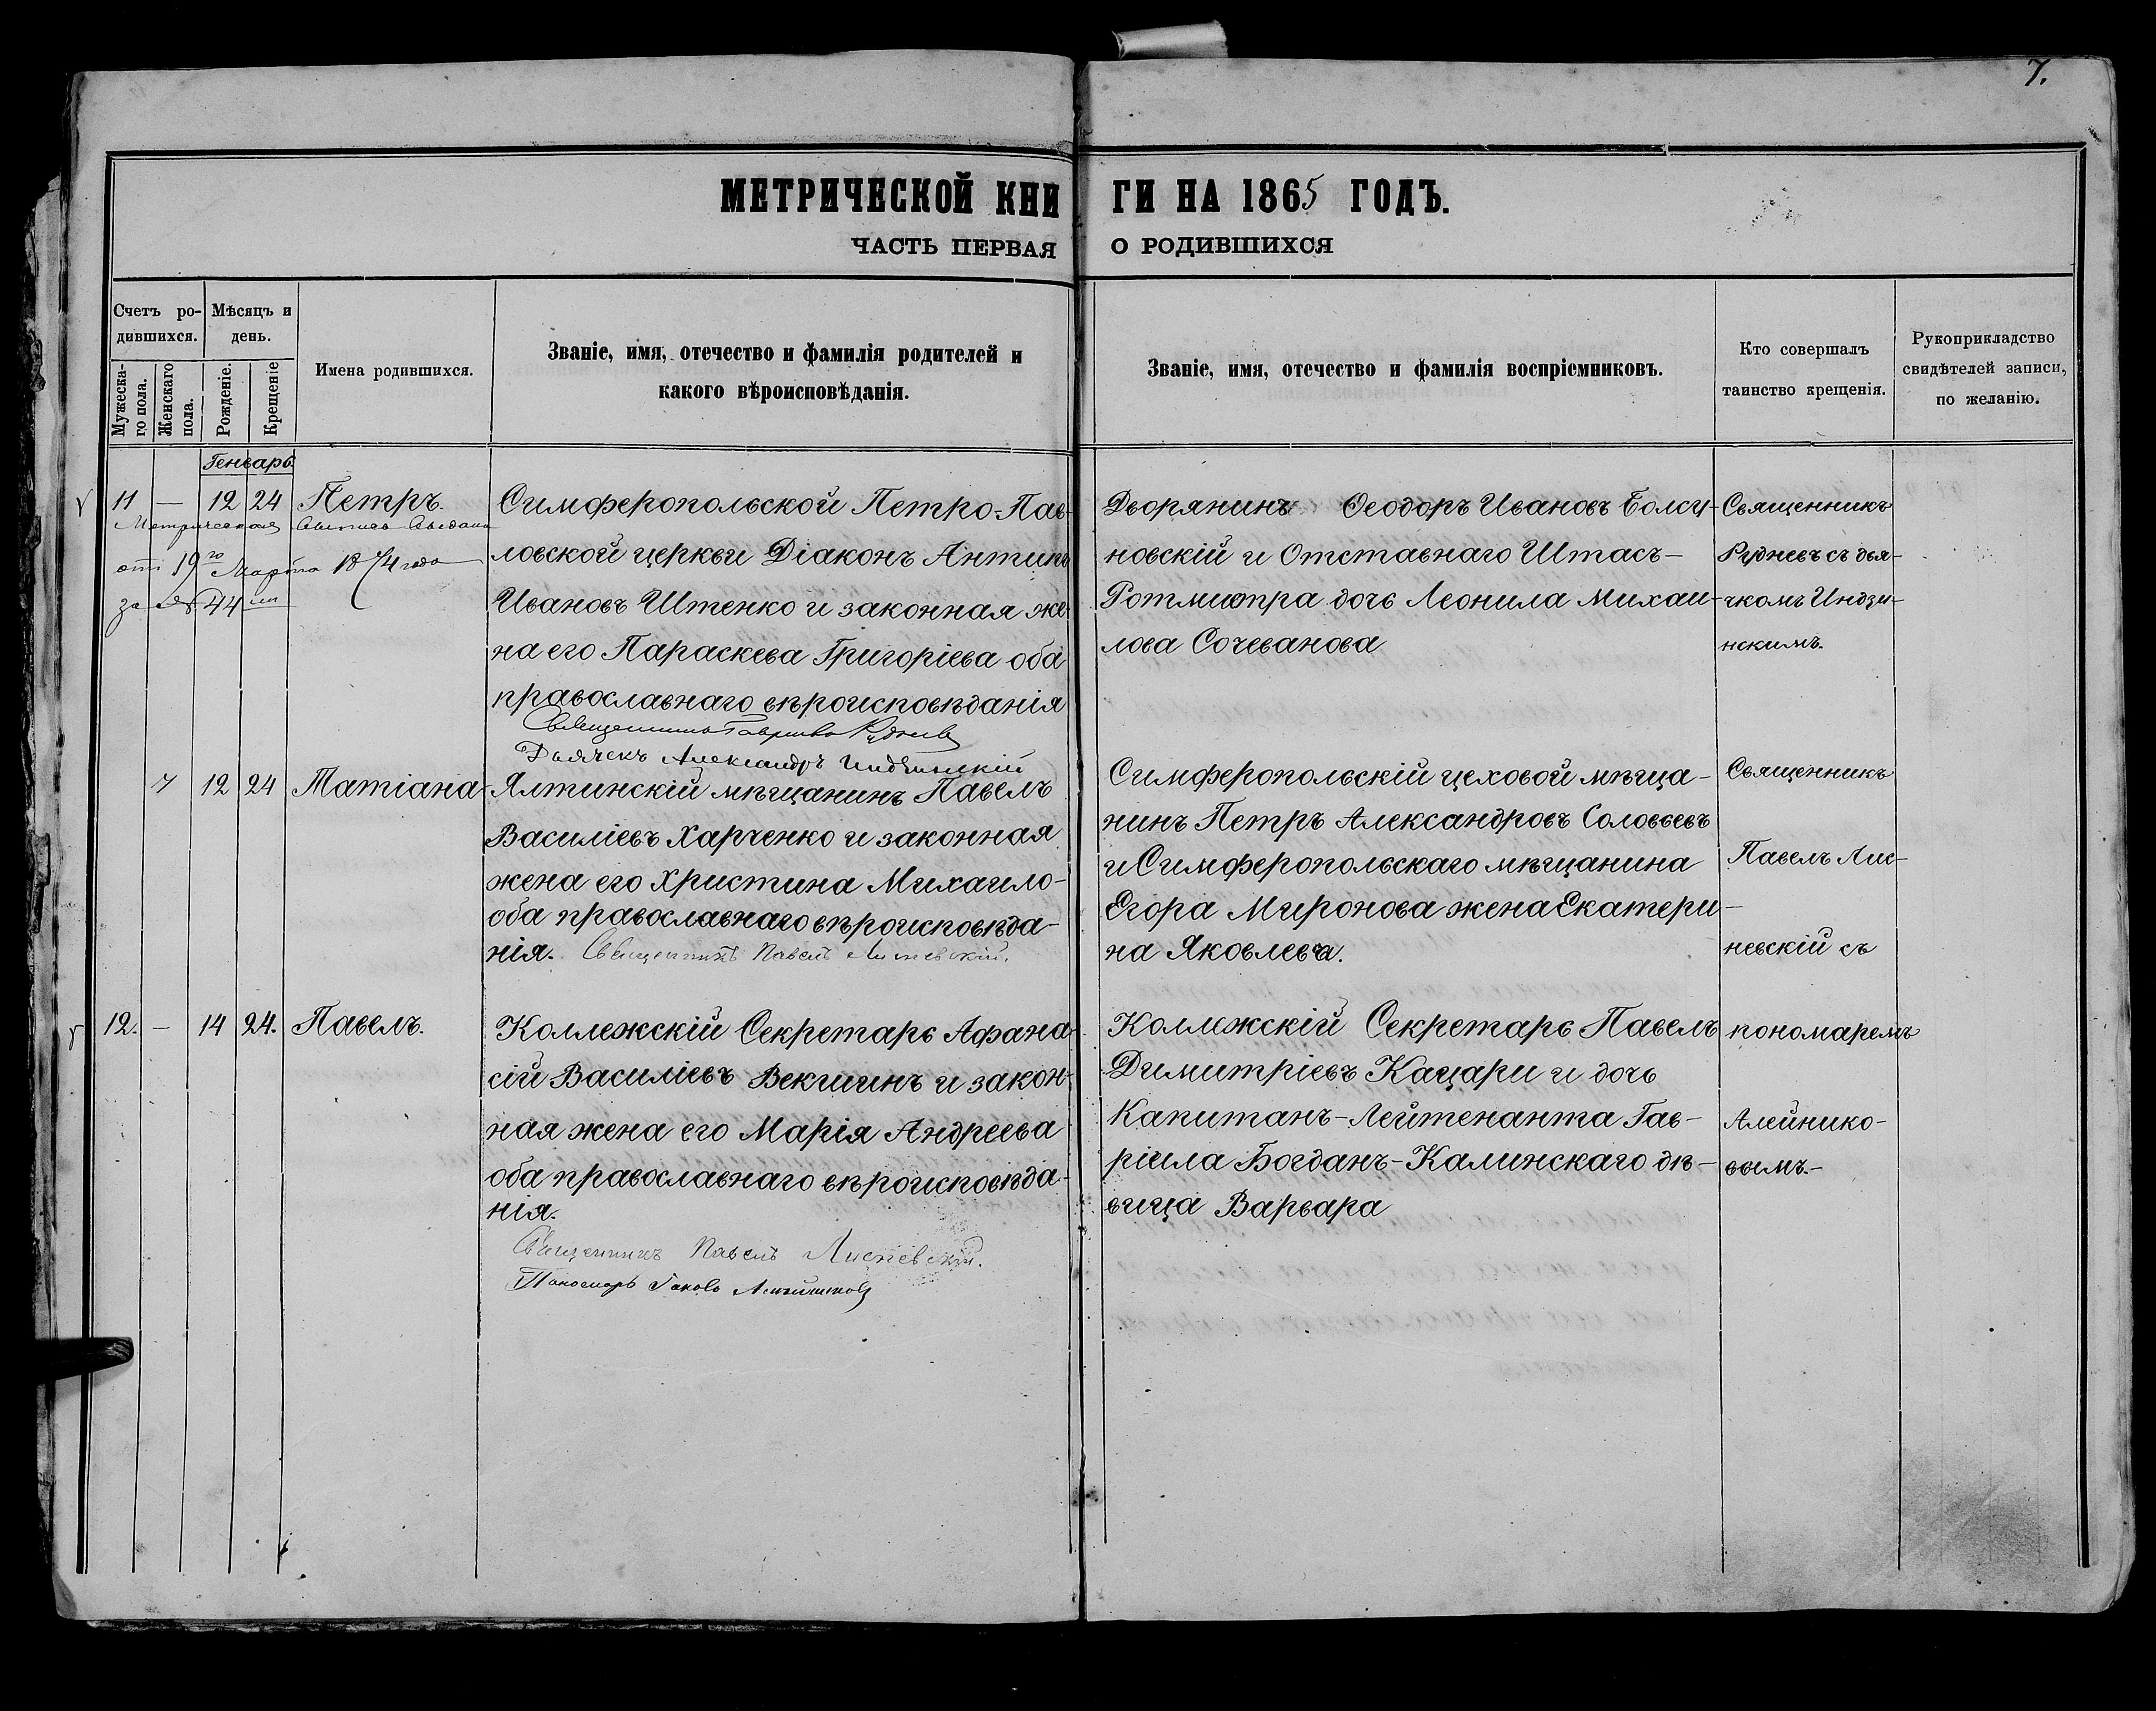 7.
МЕТРИЧЕСКОЙ КНИ ГИ НА 1865 ГОДЪ.
ЧАСТЬ ПЕРВАЯ О РОДИВШИХСЯ
Счетъ ро-
дившихся.
Мѣсяцъ и
день.
Мужеска-
го пола.
Женскаго
пола.
Рожденіе.
Крещеніе
Имена родившихся.
Званіе, имя, отечество и фамилія родителей и
какого вѣроисповѣданія.
Званіе, имя, отечество и фамилія воспріемниковъ.
Кто совершалъ
таинство крещенія.
Рукоприкладство
свидѣтелей записи,
по желанію.
Генварь
11 — 12 24 Петръ.
Метрическая
отъ 19го Марта 1874 года
за № 44
Симферопольской Петро-Пав-
ловской церкви Діаконъ Антипъ
Ивановъ Штенко и законная же-
на его Параскева Григоріева оба
православнаго вѣроисповѣданія
Священникъ Гавріилъ Рудневъ
Дьячекъ Александръ Индзинскій
Дворянинъ Ѳеодоръ Ивановъ Болсу-
новскій и Отставнаго Штасъ-
Ротмистра дочь Леонила Михаи-
лова Сочеванова
Священникъ
Рудневъ съ дья-
чкомъ Индзи-
нскимъ.
7 12 24 Татіана
Ялтинскій мѣщанинъ Павелъ
Василіевъ Харченко и законная
жена его Христина Михаило-
оба православнаго вѣроисповѣда-
нія. Священникъ Павелъ Лисневскій.
Симферопольскій цеховой мѣща-
нинъ Петръ Александровъ Соловьевъ
и Симферопольскаго мѣщанина
Егора Миронова жена Екатери-
на Яковлева.
Священникъ
Павелъ Лис-
невскій съ
12. — 14 24. Павелъ.
Коллежскій Секретарь Афана-
сій Василіевъ Векшинъ и закон-
ная жена его Марія Андреева
оба православнаго вѣроисповѣда-
нія.
Священникъ Павелъ Лисневскій.
Пономарь Іаковъ Алейниковъ
Колежскій Секретарь Павелъ
Димитріевъ Кацари и дочь
Капитанъ-Лейтенанта Гав-
ріила Богданъ-Калинскаго дѣ-
вица Варвара
пономаремъ
Алейнико-
вымъ-